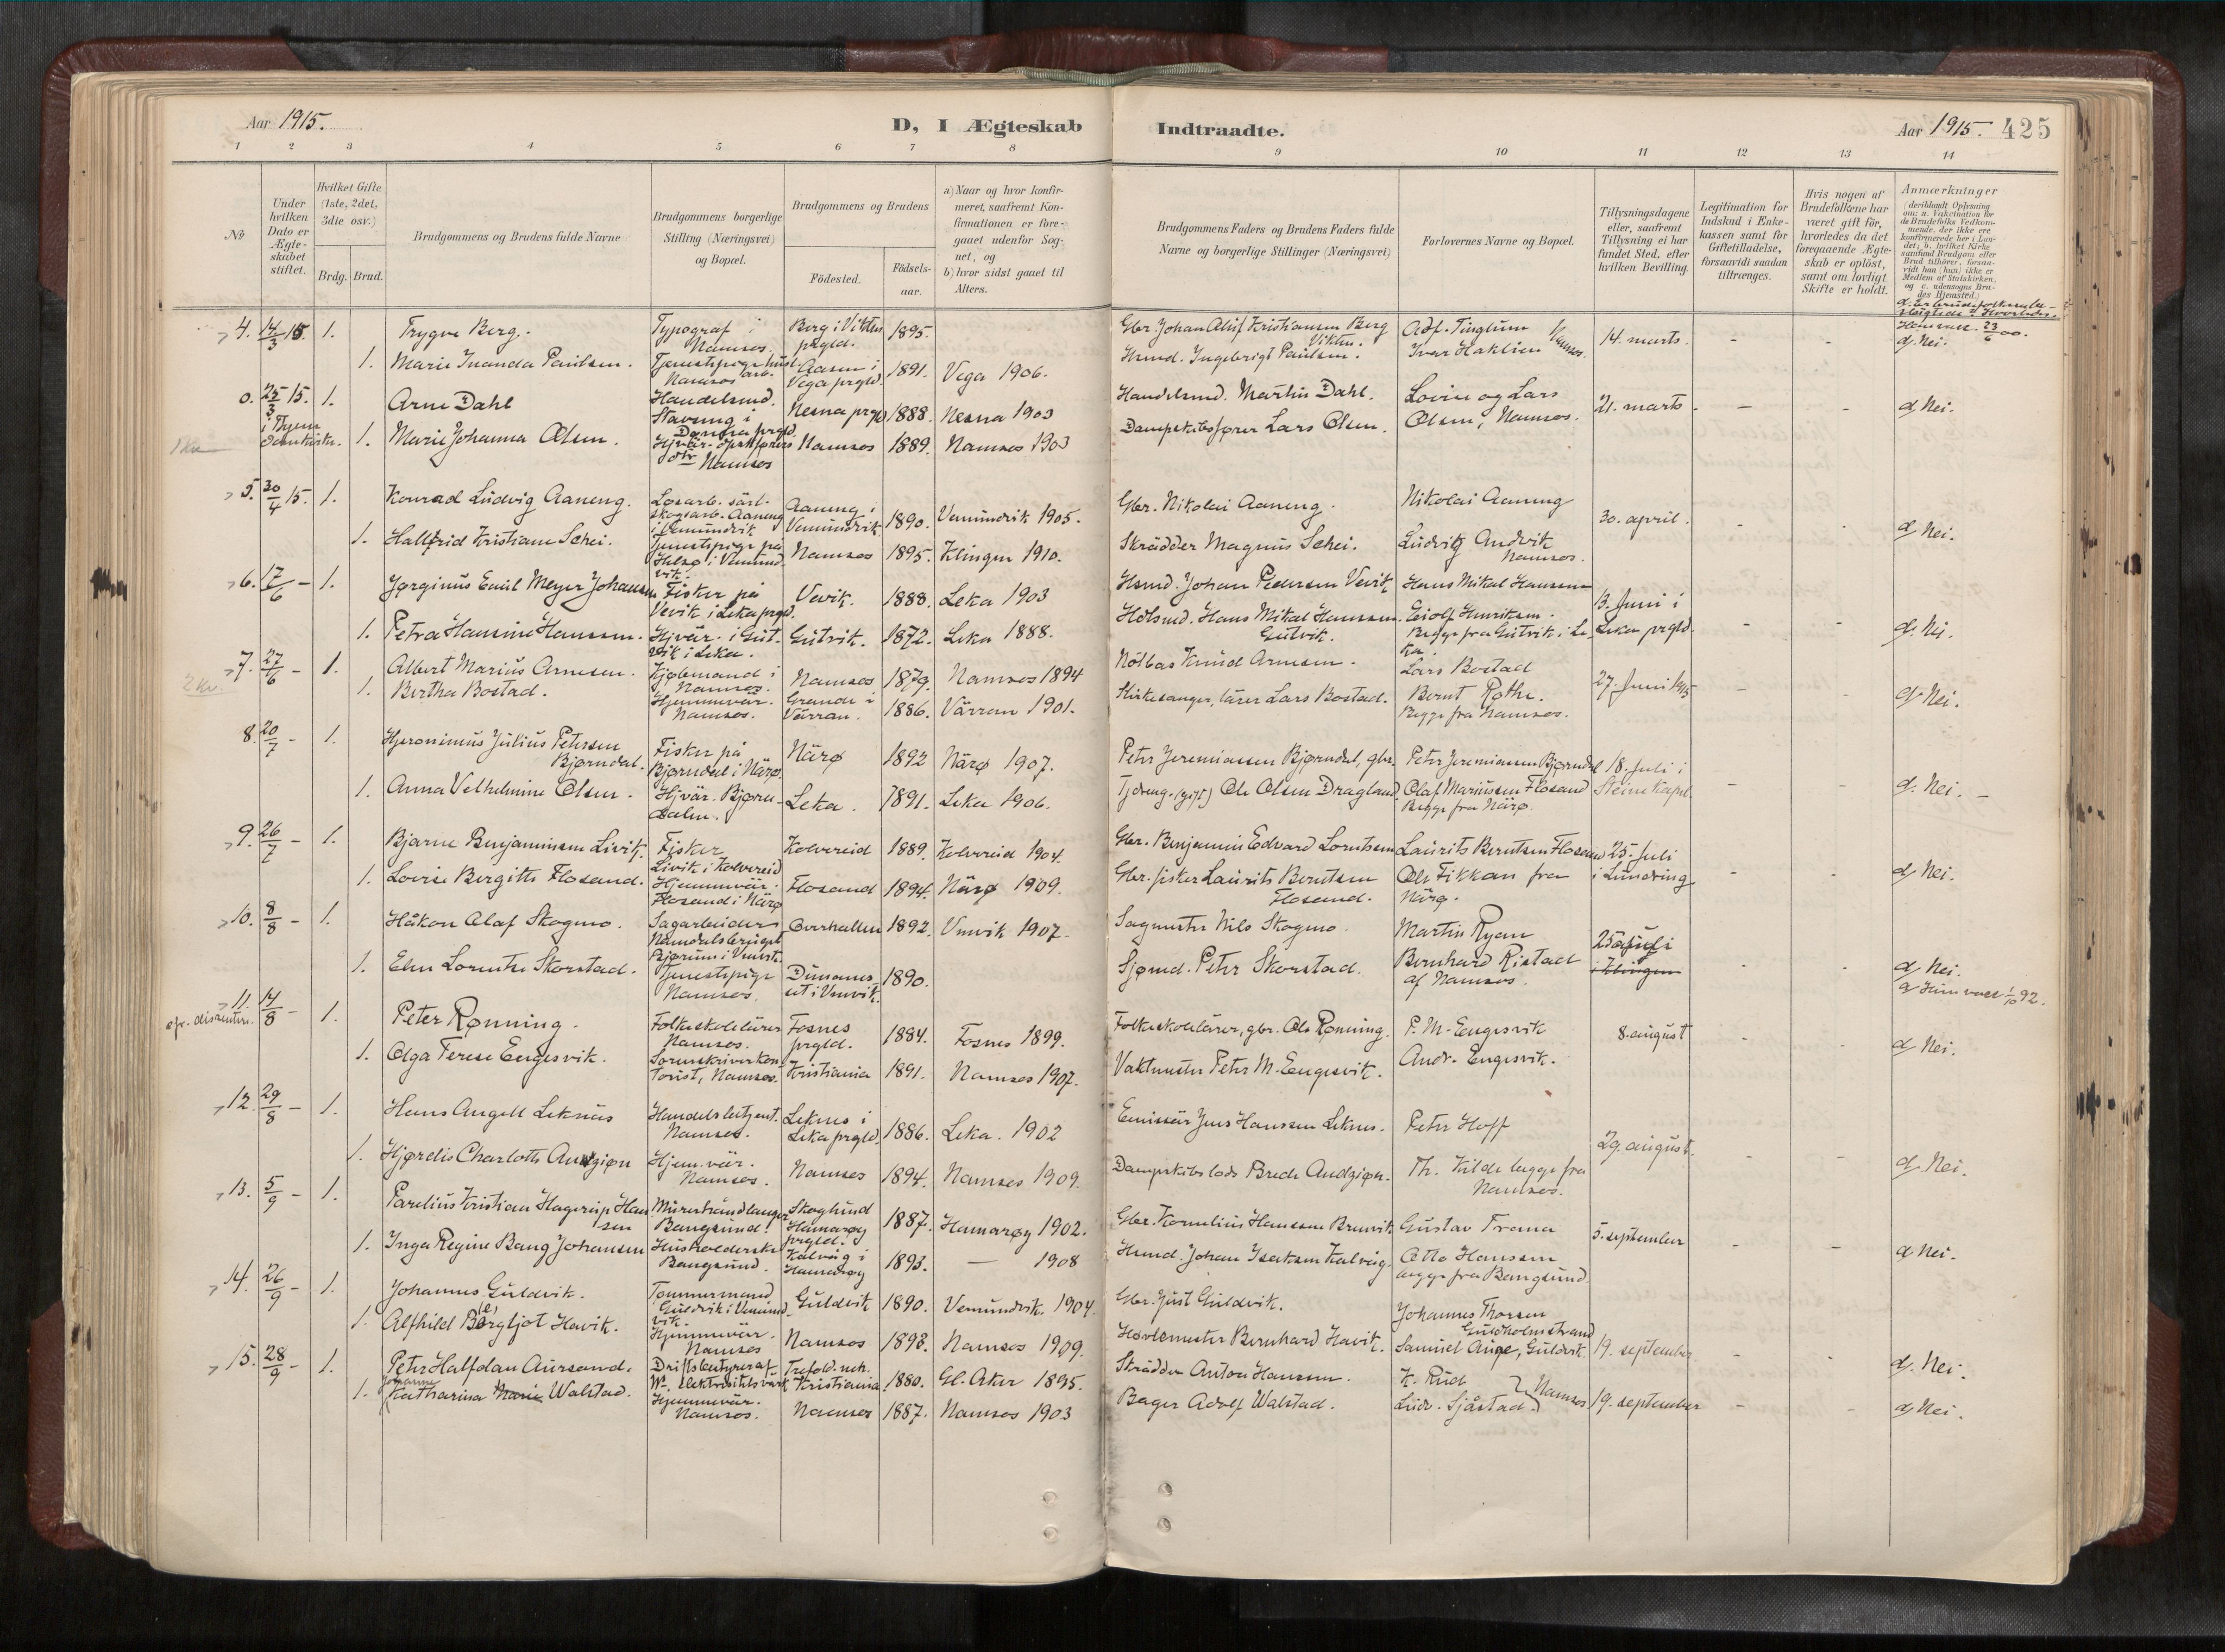 Aar 1915.
D, I Ægteskab
Indtraadte.
Aar 1915. 425
1 2 3 4 5 6 7 8 9 10 11 12 13 14
No
Under hvilken Dato er Ægte-skabet stiftet.
Hvilket Gifte (1ste, 2det, 3die osv.)
Brdg. Brud.
Brudgommens og Brudens fulde Navne
Brudgommens borgerlige Stilling (Næringsvei) og Bopæl.
Brudgommens og Brudens
Födested.
Födsels-aar.
a) Naar og hvor konfir-meret, saafremt Kon-firmationen er fore-gaaet udenfor Sog-net, og
b) hvor sidst gaaet til Alters.
Brudgommens Faders og Brudens Faders fulde Navne og borgerlige Stillinger (Næringsvei)
Forlovernes Navne og Bopæl.
Tillysningsdagene eller, saafremt Tillysning ei har fundet Sted, efter hvilken Bevilling.
Legitimation for Indskud i Enke-kassen samt for Giftetilladelse, forsaavidt saadan tiltrænges.
Hvis nogen af Brudefolkene har været gift för, hvorledes da det foregaaende Ægte-skab er oplöst, samt om lovligt Skifte er holdt.
Anmærkninger (deriblandt Oplysning om: a. Vakcination for de Brudefolks Vedkom-mende, der ikke ere konfirmerede her i Lan-det; b. hvilket Kirke-samfund Brudgom eller Brud tilhörer, forsaa-vidt han (hun) ikke er Medlem af Statskirken, og c. udensogns Bru-des Hjemsted.)
4. 14/3 15. 1. Trygve Berg. Typograf i Namsos. Berg i Vikten prgld. 1895. Gbr. Johan Aluf Kristiansen Berg Vikten. Adf. Tinglum 14. marts. - -
1. Marie Inanda Paulsen. Namsos Aasen i Vega prgld. 1891. Vega 1906. Hsmd. Ingebrigt Paulsen. Ivar Haklien Namsos. d. Nei.
0. 25/3 15. 1. Arne Dahl Handelsmd. Nesna prgld 1888. Nesna 1903 Handelsmd. Martin Dahl. Lovise og Lars Olsen, Namsos. 21. marts - - d. Nei.
1 kr.
1. Marie Johanna Olsen. Namsos Namsos 1889. Namsos 1903 Dampskibsfører Lars Olsen.
5. 30/4 15. 1. Konrad Ludvig Aaneng. Aaneng i Vemundvik Aaneng i Vemundvik 1890. Vemundvik 1905. Gbr. Nikolai Aaneng. Nikolai Aaneng 30. april. - -
1. Hallfrid Kristiane Schei. Tjenestepige på Namsos 1895. Klingen 1910. Skrädder Magnus Schei. Ludvig Andvik Namsos. d. Nei.
6. 17/6 - 1. Jørginus Emil Meyer Johansen Fisker på Vevik i Leka prgld. Vevik. 1888. Leka 1903 Hsmd. Johan Pedersen Vevik Hans Mikal Hanssen 13. Juni i Leka prgld. - -
1. Petra Hansine Hanssen. Hjvär. i Gutvik i Leka. Gutvik. 1872. Leka 1888. Hdlsmd. Hans Mikal Hanssen Gutvik. Eiolf Henriksen. Begge fra Gutvik i Leka. d. Nei.
7. 27/6 - 1. Albert Marius Arnesen. Kjøbmand i Namsos. Namsos 1879. Namsos 1894 Knud Arnesen. Lars Bostad 27. Juni 1915 - -
2 kr.
1. Bertha Bostad. Hjemmevär. Namsos. Grande i Verran. 1886. Värran 1901. Kirkesanger, lärer Lars Bostad. Bernt Rothe. Begge fra Namsos. d. Nei.
8. 20/7 - 1. Hjeronimus Julius Petersen Bjørndal. Fisker på Bjørndal i Närø. Närø 1892 Närø 1907. Peter Jeremiassen Bjørndal, gbr. Peter Jeremiassen Bjørndal 18. Juli i Steine Kapel - -
1. Anna Velhelmine Olsen. Hjvär. Bjørndalen. Leka. 1891. Leka 1906. Ole Olsen Dragland Olaf Mariussen Flosand Begge fra Närø. d. Nei. -
9. 26/7 - 1. Bjarne Benjaminsen Livik. Fisker Livik i Kolvereid Kolvereid 1889. Kolvereid 1904. Gbr. Benjamin Edvard Lorntsen Laurits Berntsen Flosand 25. Juli i Lundring - -
1. Lovise Bergitte Flosand. Hjemmvär. Flosand i Närø Flosand 1894. Närø 1909. Gbr. fisker Laurits Berntsen Flosand. Ole Fikkan fra Närø. d. Nei.
10. 8/8 - 1. Håkon Olaf Skogmo. Sagarbeider Namdalsbruget Overhallen 1892. Vmvik 1907. Sagmester Nils Skogmo. Martin Ryan 25 juli i Klingen - -
1. Elen Lorntse Skorstad. Tjenestepige Namsos. 1890. Sjømd. Peter Skorstad. Bernhard Ristad af Namsos. d. Nei.
11. 14/8 - 1. Peter Rønning. Folkeskolelärer Namsos. Fosnes prgld. 1884. Fosnes 1899. Folkeskolelärer, gbr. Ole Rønning. P. M. Engesvik 8. august - -
1. Olga Terese Engesvik. Sorenskriverkontorist, Namsos. Kristiania 1891. Namsos 1907. Vaktmester Peter M. Engesvik. Andr. Engesvik. d. Nei.
12. 29/8 - 1. Hans Angell Leknes Handelsbetjent. Namsos. Leknes i Leka prgld. 1886. Leka. 1902 Emissär Jens Hanssen Leknes. Peter Hoff 29. august. - -
1. Hjørdis Charlotte Andgjøn Hjem.vär. Namsos. Namsos 1894. Namsos 1909. Dampskibslods Brede Andgjøn. Th. Kilde begge fra Namsos. d. Nei.
13. 5/9 - 1. Parelius Kristian Hagerup Hansen Murerhåndlanger Bangsund. Hamarøy prgld. 1887. Hamarøy 1902. Gbr. Kornelius Hanssen Brunvik Gustav Trana 5. september - -
1. Inga Regine Bang Johansen Husholderske Bangsund. Kalvåg i Hamarøy 1893. - 1908 Hsmd. Johan Isaksen Kalvåg. Otto Hanssen begge fra Bangsund. d. Nei.
14. 26/9 - 1. Johannes Guldvik. Tømmermand Guldvik i Vemundvik. Guldvik 1890. Vemundvik. 1904. Gbr. Just Guldvik. Johannes Thorsen
1. Alfhild Bergljot Havik. Hjemmevär. Namsos Namsos 1893. Namsos 1909. Høvlemester Bernhard Havik. Samuel Aune, Guldvik. 19. september - - d. Nei.
15. 28/9 - 1. Peter Halfdan Aursand. Driftsbestyrer af Elektricitetsvärk Kristiania 1880. Gl. Aker 1895. Skrädder Anton Hanssen. K. Rud
1. Johanne Katharina Marie Walstad. Hjemmevär. Namsos. Namsos 1887. Namsos 1903 Bager Adolf Walstad. Ludv. Sjåstad. Namsos. 19. september - - d. Nei.